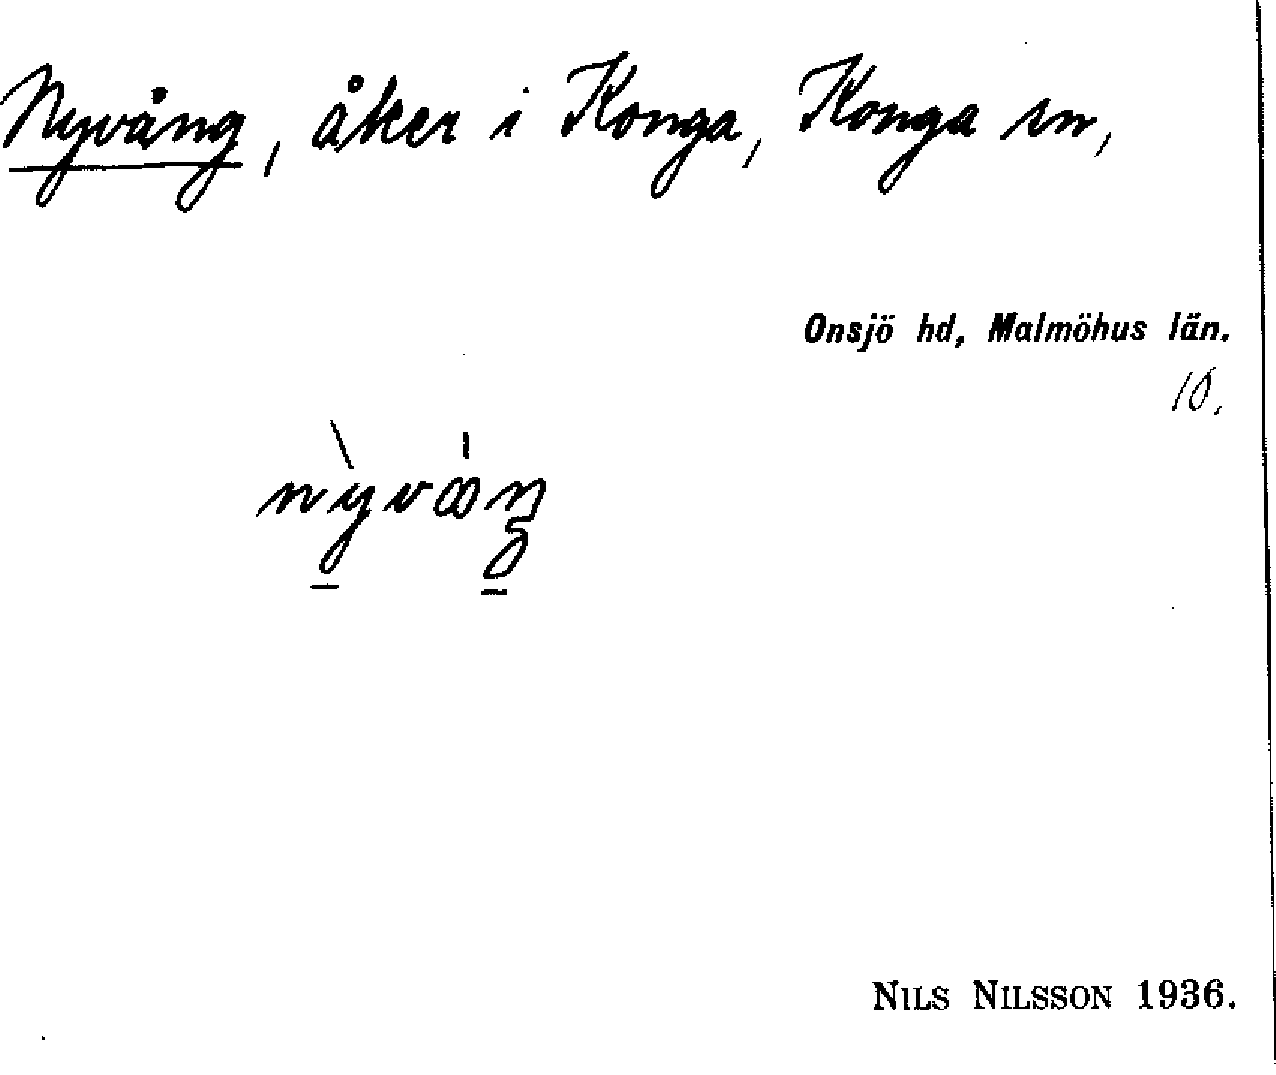 Nyvång, åker i Konga, Konga sn,
Onsjö hd, Malmöhus län.
10.
NILS NILSSON 1936.